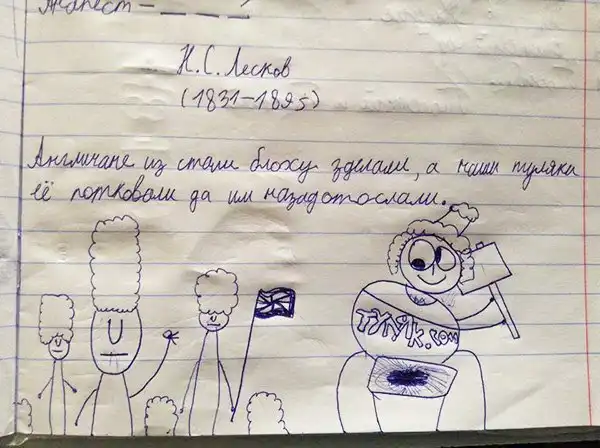 Анапест – _ _ _ ,
Н.С. Лесков
(1831–1895)
Англичане из стали блоху зделали, а наши туляки
её потковали да им назадотослали.
ТУЛЯК.com